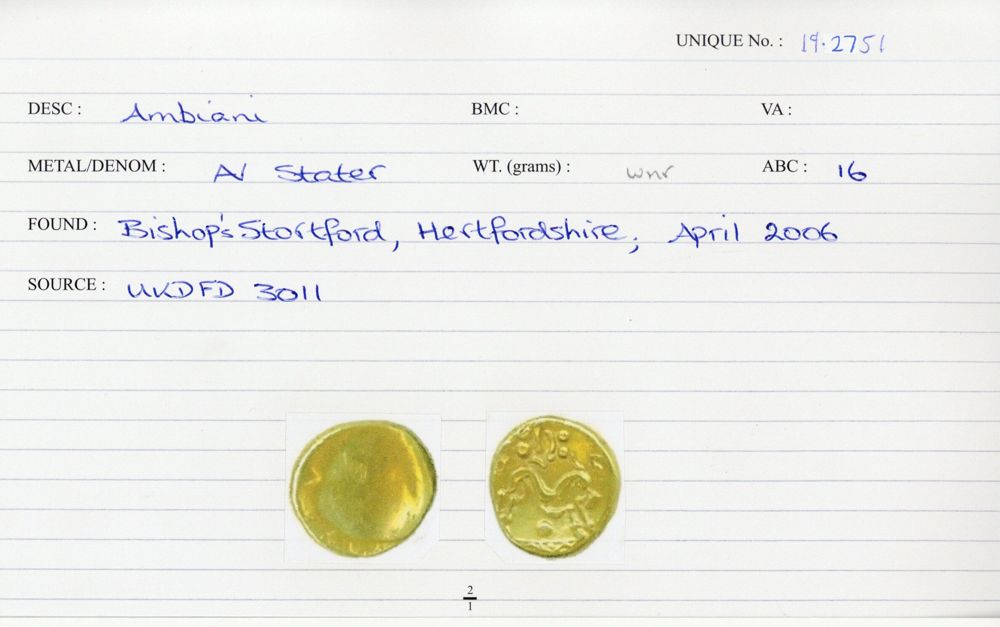 UNIQUE No. : 19.2751
DESC : Ambiani BMC : VA :
METAL/DENOM : AV Stater WT. (grams) : wnr ABC : 16
FOUND : Bishop's Stortford, Hertfordshire; April 2006
SOURCE : UKDFD 3011
2
1